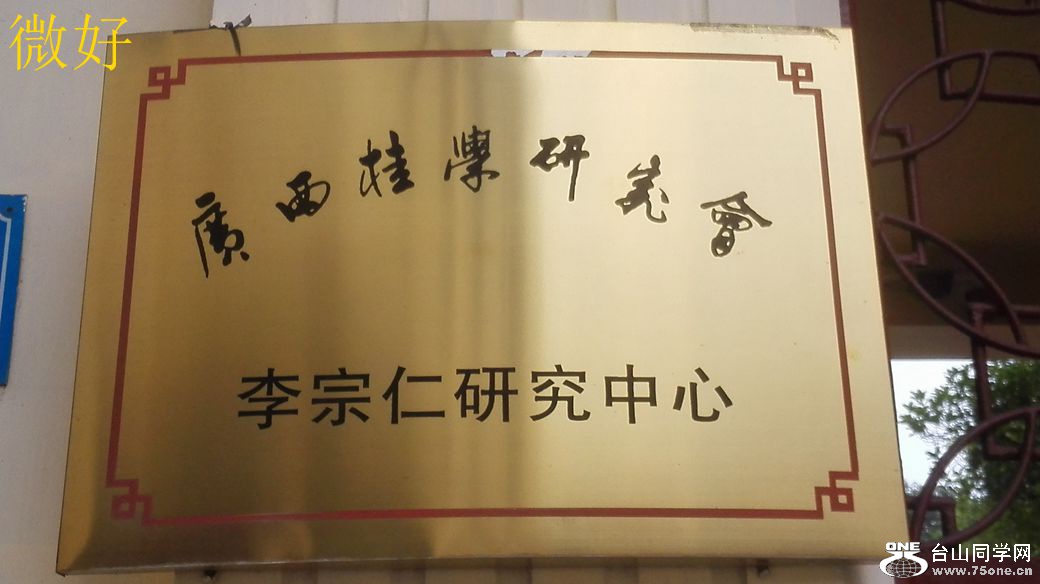 微好
廣西桂學研究會
李宗仁研究中心
ONE 台山同学网
www.75one.cn